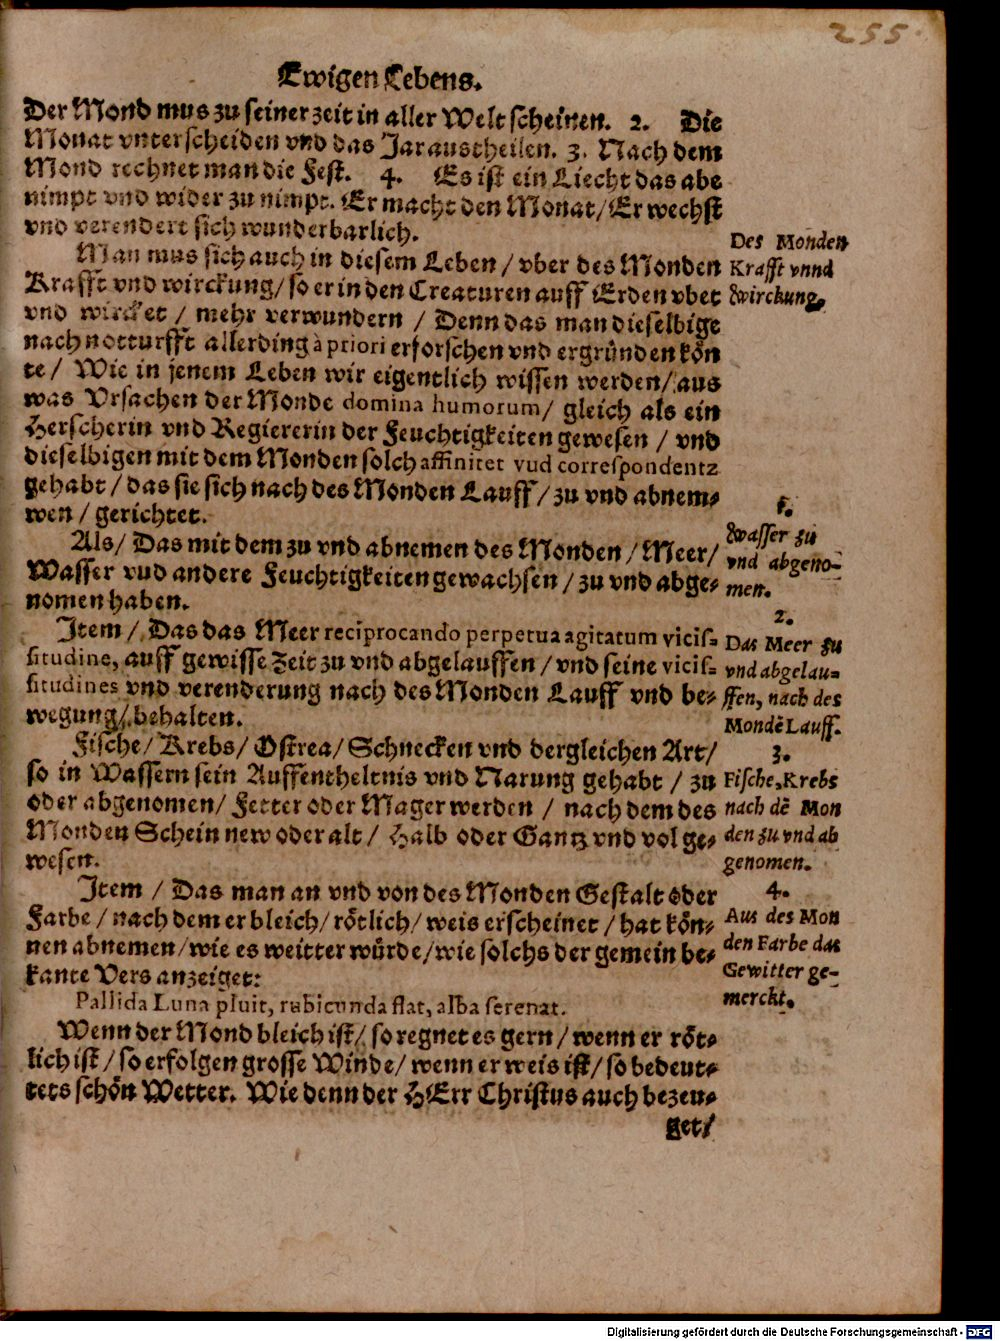 255.
Ewigen Lebens.
Der Mond mus zu seiner zeit in aller Welt scheinen. 2. Die
Monat vnterscheiden vnd das Jar austheilen. 3. Nach dem
Mond rechnet man die Fest. 4. Es ist ein Liecht das abe
nimpt vnd wider zu nimpt. Er macht den Monat/ Er wechst
vnd verendert sich wunderbarlich.
Man mus sich auch in diesem Leben / vber des Monden
Krafft vnd wirckung/ so er in den Creaturen auff Erden vbet
vnd wircket / mehr verwundern / Denn das man dieselbige
nach notturfft allerding à priori erforschen vnd ergründen kön
te/ Wie in jenem Leben wir eigentlich wissen werden/ aus
was Vrsachen der Monde domina humorum/ gleich als ein
Herscherin vnd Regiererin der Feuchtigkeiten gewesen / vnd
dieselbigen mit dem Monden solch affinitet vud correspondentz
gehabt / das sie sich nach des Monden Lauff/ zu vnd abnem-
wen / gerichtet.
Als/ Das mit dem zu vnd abnemen des Monden / Meer/
Wasser vud andere Feuchtigkeiten gewachsen / zu vnd abge-
nomen haben.
Item / Das das Meer reciprocando perpetua agitatum vicis-
situdine, auff gewisse Zeit zu vnd abgelauffen / vnd seine vicis-
situdines vnd verenderung nach des Monden Lauff vnd be-
wegung/ behalten.
Fische/ Krebs/ Ostrea/ Schnecken vnd dergleichen Art/
so in Wassern sein Auffentheltnis vnd Narung gehabt / zu
oder abgenomen/ Fetter oder Mager werden / nach dem des
Monden Schein new oder alt / Halb oder Gantz vnd vol ge-
wesen.
Item / Das man an vnd von des Monden Gestalt oder
Farbe / nach dem er bleich/ rötlich/ weis erscheinet / hat kön-
nen abnemen/ wie es weitter würde/ wie solchs der gemein be-
kante Vers anzeiget:
Pallida Luna pluit, rubicunda flat, alba serenat.
Wenn der Mond bleich ist/ so regnet es gern / wenn er röt-
lich ist / so erfolgen grosse Winde/ wenn er weis ist/ so bedeut-
tets schön Wetter. Wie denn der HErr Christus auch bezeu-
get/
Des Monden
Krafft vnnd
Wirckung.
1.
Wasser zu
vnd abgeno-
men.
2.
Das Meer zu
vnd abgelau-
ffen, nach des
Mondē Lauff.
3.
Fische, Krebs
nach dē Mon
den zu vnd ab
genomen.
4.
Aus des Mon
den Farbe das
Gewitter ge-
merckt.
Digitalisierung gefördert durch die Deutsche Forschungsgemeinschaft - DFG